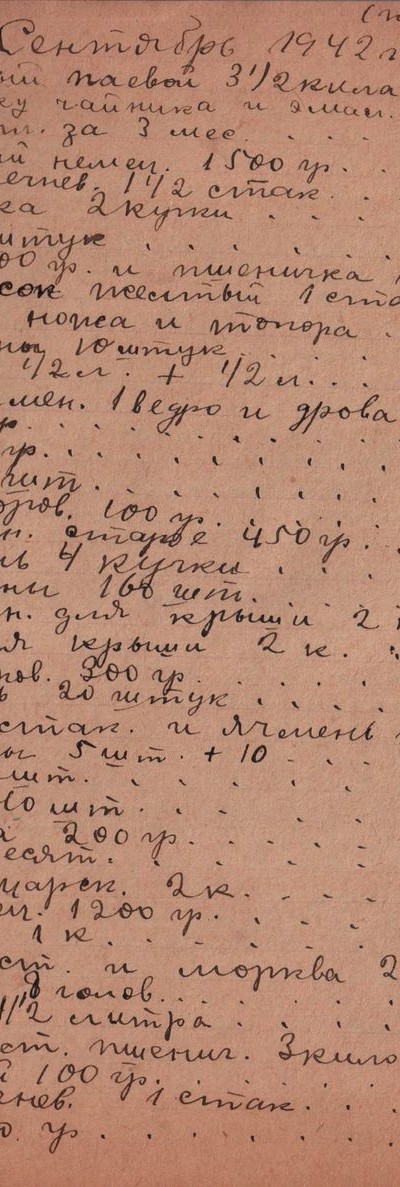 Сентябрь 1942 г
ый паевой 3 1/2 кила
ку чайника и эмал.
т. за 3 мес. . . .
ий немец. 1500 гр. .
ечнев. 1 1/2 стак. . .
ка 2 кучки . . .
штук . . . . .
00 гр. и пшеничка
сок жестый 1 ста
ножа и топора .
ны 10 штук . . .
1/2 л. + 1/2 л. . .
мен. 1 ведро и дрова
р.
гр. . . . . . . .
шт. . . . . . .
ров. 100 гр. . . .
н. старое 450 гр. .
ль 4 кучки . . .
ны 160 шт. . . .
н. для крыши 2
ля крыши 2 к. .
ков. 300 гр. . . .
ь 20 штук . . .
стак. и ячмень
ы 5 шт. + 10 - . .
шт. . . . . .
10 шт. . . . .
а 200 гр. . . .
есят. . . . .
царск. 2 к. . . .
ем. 1200 гр. . . .
1 к. . . . .
ст. и морква 2
8 голов. . . .
1/2 литра . . .
ст. пшенич. 3 кило
й 100 гр. . . .
чнев. 1 стак. . .
0 гр. . . . . .